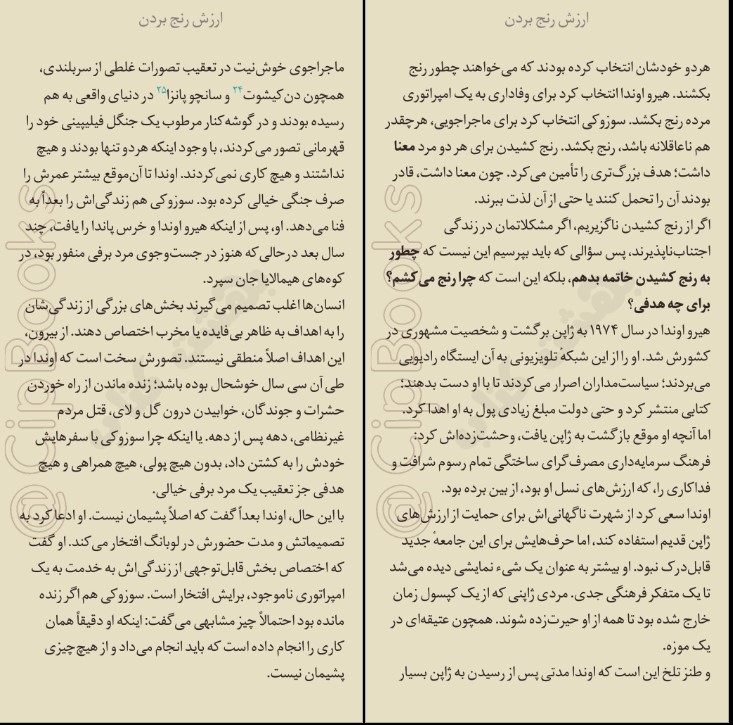 ارزش رنج بردن
هردو خودشان انتخاب کرده بودند که می‌خواهند چطور رنج
بکشند. هیرو اوندا انتخاب کرد برای وفاداری به یک امپراتوری
مرده رنج بکشد. سوزوکی انتخاب کرد برای ماجراجویی، هرچقدر
هم ناعاقلانه باشد، رنج بکشد. رنج کشیدن برای هر دو مرد معنا
داشت؛ هدف بزرگ‌تری را تأمین می‌کرد. چون معنا داشت، قادر
بودند آن را تحمل کنند یا حتی از آن لذت ببرند.
اگر از رنج کشیدن ناگزیریم، اگر مشکلاتمان در زندگی
اجتناب‌ناپذیرند، پس سؤالی که باید بپرسیم این نیست که چطور
به رنج کشیدن خاتمه بدهم، بلکه این است که چرا رنج می‌کشم؟
برای چه هدفی؟
هیرو اوندا در سال ۱۹۷۴ به ژاپن برگشت و شخصیت مشهوری در
کشورش شد. او را از این شبکهٔ تلویزیونی به آن ایستگاه رادیویی
می‌بردند؛ سیاست‌مداران اصرار می‌کردند تا با او دست بدهند؛
کتابی منتشر کرد و حتی دولت مبلغ زیادی پول به او اهدا کرد.
اما آنچه او موقع بازگشت به ژاپن یافت، وحشت‌زده‌اش کرد:
فرهنگ سرمایه‌داری مصرف‌گرای ساختگی تمام رسوم شرافت و
فداکاری را، که ارزش‌های نسل او بود، از بین برده بود.
اوندا سعی کرد از شهرت ناگهانی‌اش برای حمایت از ارزش‌های
ژاپن قدیم استفاده کند، اما حرف‌هایش برای این جامعهٔ جدید
قابل‌درک نبود. او بیشتر به عنوان یک شیء نمایشی دیده می‌شد
تا یک متفکر فرهنگی جدی. مردی ژاپنی که از یک کپسول زمان
خارج شده بود تا همه از او حیرت‌زده شوند. همچون عتیقه‌ای در
یک موزه.
و طنز تلخ این است که اوندا مدتی پس از رسیدن به ژاپن بسیار
ارزش رنج بردن
ماجراجوی خوش‌نیت در تعقیب تصورات غلطی از سربلندی،
همچون دن‌کیشوت۲۴ و سانچو پانزا۲۵ در دنیای واقعی به هم
رسیده بودند و در گوشه‌کنار مرطوب یک جنگل فیلیپینی خود را
قهرمانی تصور می‌کردند، با وجود اینکه هردو تنها بودند و هیچ
نداشتند و هیچ کاری نمی‌کردند. اوندا تا آن‌موقع بیشتر عمرش را
صرف جنگی خیالی کرده بود. سوزوکی هم زندگی‌اش را بعداً به
فنا می‌دهد. او، پس از اینکه هیرو اوندا و خرس پاندا را یافت، چند
سال بعد درحالی‌که هنوز در جست‌وجوی مرد برفی منفور بود، در
کوه‌های هیمالایا جان سپرد.
انسان‌ها اغلب تصمیم می‌گیرند بخش‌های بزرگی از زندگی‌شان
را به اهداف به ظاهر بی‌فایده یا مخرب اختصاص دهند. از بیرون،
این اهداف اصلاً منطقی نیستند. تصورش سخت است که اوندا در
طی آن سی سال خوشحال بوده باشد؛ زنده ماندن از راه خوردن
حشرات و جوندگان، خوابیدن درون گل و لای، قتل مردم
غیرنظامی، دهه پس از دهه. یا اینکه چرا سوزوکی با سفرهایش
خودش را به کشتن داد، بدون هیچ پولی، هیچ همراهی و هیچ
هدفی جز تعقیب یک مرد برفی خیالی.
با این حال، اوندا بعداً گفت که اصلاً پشیمان نیست. او ادعا کرد به
تصمیماتش و مدت حضورش در لوبانگ افتخار می‌کند. او گفت
که اختصاص بخش قابل‌توجهی از زندگی‌اش به خدمت به یک
امپراتوری ناموجود، برایش افتخار است. سوزوکی هم اگر زنده
مانده بود احتمالاً چیز مشابهی می‌گفت: اینکه او دقیقاً همان
کاری را انجام داده است که باید انجام می‌داد و از هیچ‌چیزی
پشیمان نیست.
@CipBooks
@CipBooks